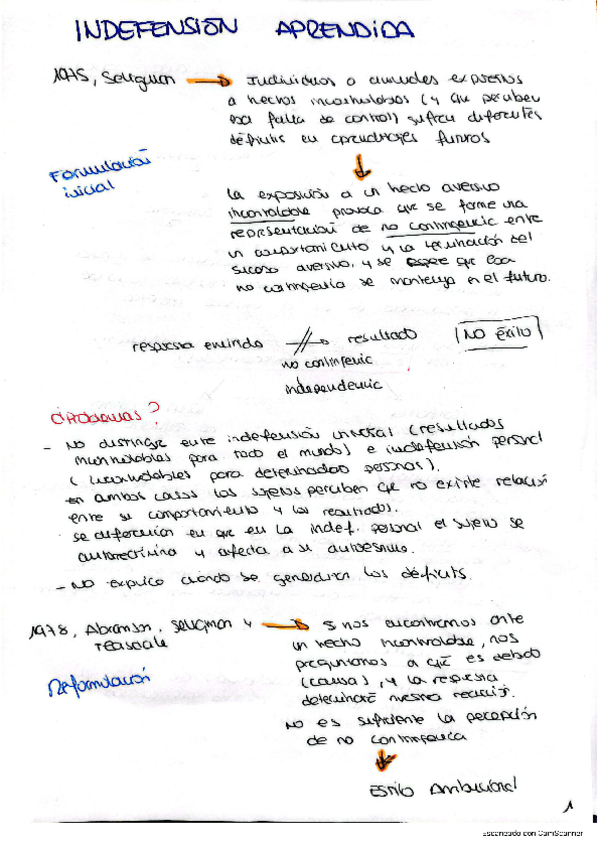 INDEFENSIÓN APRENDIDA
1975, Seligman → Individuos o animales expuestos
a hechos incontrolables (y que perciben
esa falta de control) sufren diferentes
déficits en aprendizajes futuros
Formulación
inicial
La exposición a un hecho aversivo
incontrolable provoca que se forme una
representación de no contingencia entre
un comportamiento y la terminación del
suceso aversivo, y se espere que esa
no contingencia se mantenga en el futuro.
respuesta emitida resultado NO éxito
no contingencia
independencia
¿Problemas?
- No distingue entre indefensión universal (resultados
incontrolables para todo el mundo) e indefensión personal
(incontrolables para determinadas personas).
en ambos casos los sujetos perciben que no existe relación
entre su comportamiento y los resultados.
se diferencian en que en la indef. personal el sujeto se
autorrecrimina y afecta a su autoestima.
- No explica cuándo se generalizan los déficits.
1978, Abramson, Seligman y → Si nos encontramos ante
Teasdale un hecho incontrolable, nos
preguntamos a qué es debido
(causa), y la respuesta
determinará nuestra reacción.
Reformulación
No es suficiente la percepción
de no contingencia
Estilo Atribucional
1
Escaneado con CamScanner